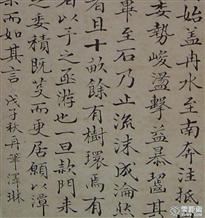 始蓋冉水至南奔注抵
委勢峻盪擊益暴齧其
畢至石乃止流沫成淪然
者且十畝餘有樹環焉有
者以予之亟游也一旦款門來
之委積既芟而更居願以潭
而如其言 戊子秋丹華澤琳